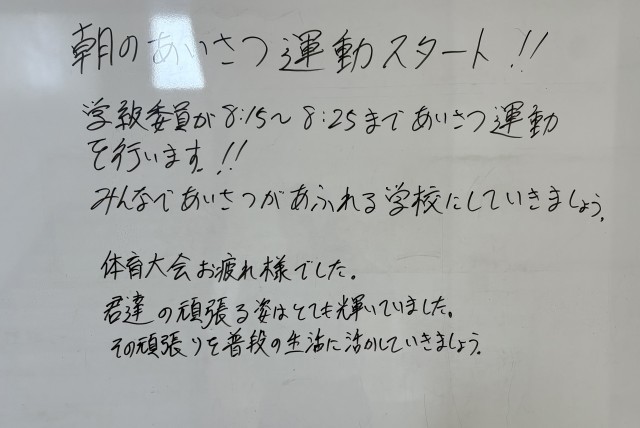 朝のあいさつ運動スタート!!
学級委員が8:15〜8:25まであいさつ運動
を行います!!
みんなであいさつがあふれる学校にしていきましょう。
体育大会お疲れ様でした。
君達の頑張る姿はとても輝いていました。
その頑張りを普段の生活に活かしていきましょう。